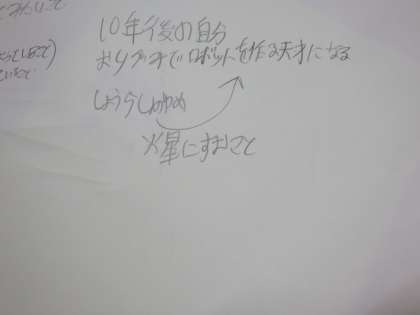 10年後の自分
おりがみでロボットを作る天才になる
しょうらいのゆめ
火星にすむこと